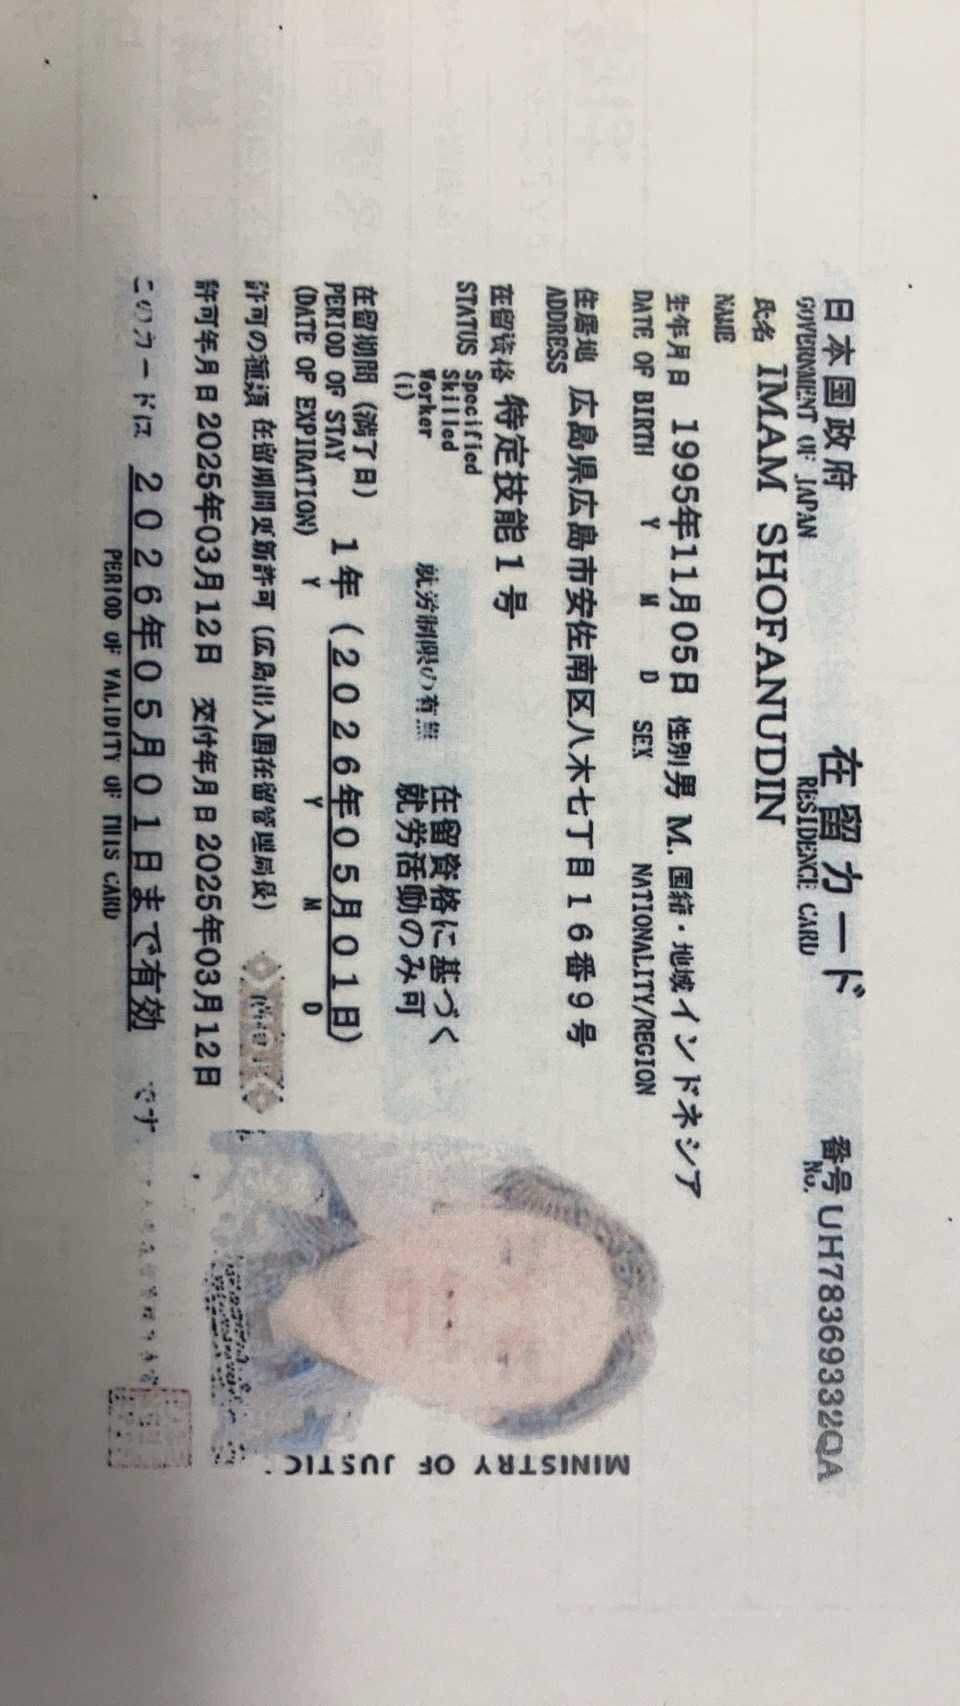 日本国政府 在留カード 番号 UH78369332QA
GOVERNMENT OF JAPAN RESIDENCE CARD No.
氏名 IMAM SHOFANUDIN
NAME
生年月日 1995年11月05日 性別 男 M. 国籍・地域 インドネシア
DATE OF BIRTH Y M D SEX NATIONALITY/REGION
住居地 広島県広島市安佐南区八木七丁目16番9号
ADDRESS
在留資格 特定技能1号
STATUS Specified Skilled Worker (i)
就労制限の有無 在留資格に基づく就労活動のみ可
在留期間(満了日) 1年(2026年05月01日)
PERIOD OF STAY (DATE OF EXPIRATION) Y Y M D
許可の種類 在留期間更新許可(広島出入国在留管理局長)
許可年月日 2025年03月12日 交付年月日 2025年03月12日
このカードは 2026年05月01日まで有効 です。
PERIOD OF VALIDITY OF THIS CARD
MINISTRY OF JUSTIC